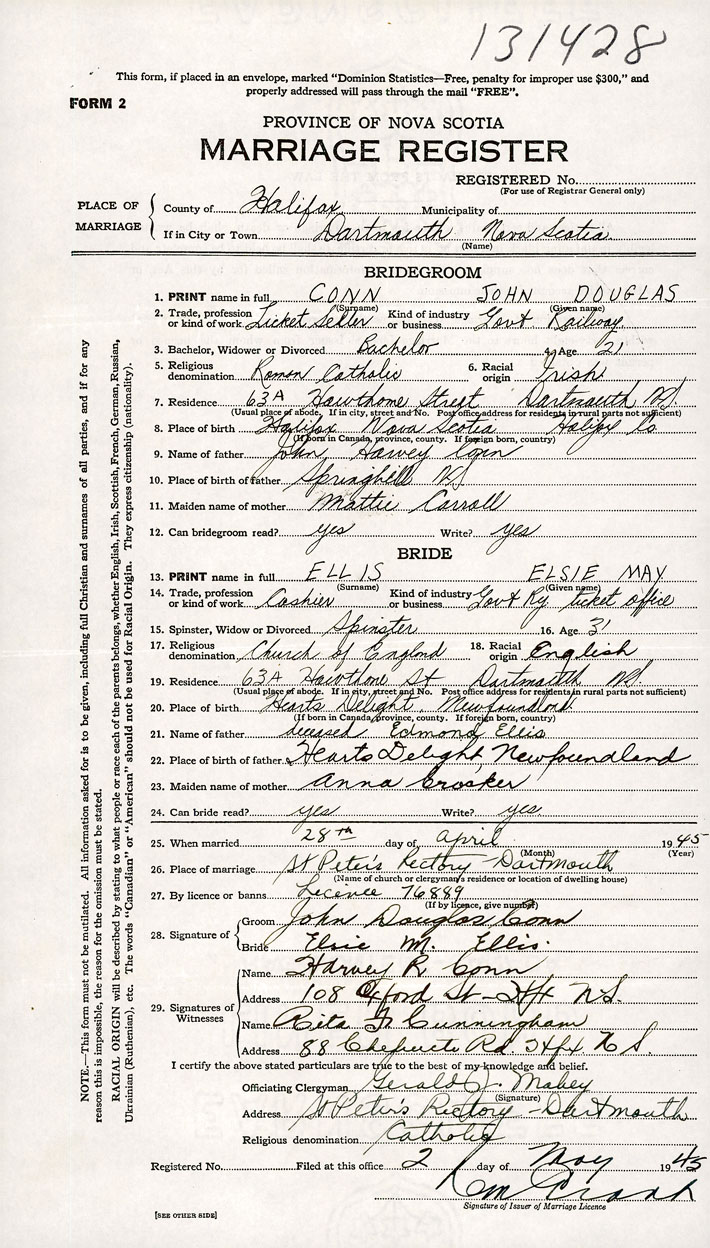 131428
This form, if placed in an envelope, marked “Dominion Statistics—Free, penalty for improper use $300,” and
properly addressed will pass through the mail “FREE”.
FORM 2
PROVINCE OF NOVA SCOTIA
MARRIAGE REGISTER
REGISTERED No.
(For use of Registrar General only)
PLACE OF MARRIAGE
County of Halifax Municipality of
If in City or Town Dartmouth Nova Scotia
(Name)
BRIDEGROOM
1. PRINT name in full CONN JOHN DOUGLAS
(Surname) (Given name)
2. Trade, profession or kind of work Ticket Seller Kind of industry or business Govt Railway
3. Bachelor, Widower or Divorced Bachelor 4. Age 21
5. Religious denomination Roman Catholic 6. Racial origin Irish
7. Residence 63A Hawthorne Street Dartmouth NS.
(Usual place of abode. If in city, street and No. Post office address for residents in rural parts not sufficient)
8. Place of birth Halifax Nova Scotia Halifax Co
(If born in Canada, province, county. If foreign born, country)
9. Name of father John Harvey Conn
10. Place of birth of father Springhill NS.
11. Maiden name of mother Mattie Carroll
12. Can bridegroom read? yes Write? yes
BRIDE
13. PRINT name in full ELLIS ELSIE MAY
(Surname) (Given name)
14. Trade, profession or kind of work Cashier Kind of industry or business Govt Ry ticket office
15. Spinster, Widow or Divorced Spinster 16. Age 31
17. Religious denomination Church of England 18. Racial origin English
19. Residence 63A Hawthorne St Dartmouth NS
(Usual place of abode. If in city, street and No. Post office address for residents in rural parts not sufficient)
20. Place of birth Hearts Delight, Newfoundland
(If born in Canada, province, county. If foreign born, country)
21. Name of father deceased Edmond Ellis
22. Place of birth of father Hearts Delight Newfoundland
23. Maiden name of mother Anna Crocker
24. Can bride read? yes Write? yes
25. When married 28th day of April 1945
(Month) (Year)
26. Place of marriage St Peter's Rectory - Dartmouth
(Name of church or clergyman's residence or location of dwelling house)
27. By licence or banns Licence 76889
(If by licence, give number)
28. Signature of
Groom John Douglas Conn
Bride Elsie M. Ellis.
29. Signatures of Witnesses
Name Harvey R Conn
Address 108 Oxford St - Hfx N.S.
Name Rita F. Cunningham
Address 88 Chebucto Rd Hfx. N S.
I certify the above stated particulars are true to the best of my knowledge and belief.
Officiating Clergyman Gerald J. Mabey
(Signature)
Address St Peter's Rectory - Dartmouth
Religious denomination Catholic
Registered No. Filed at this office 2 day of May 1945
Signature of Issuer of Marriage Licence
[SEE OTHER SIDE]
NOTE.—This form must not be mutilated. All information asked for is to be given, including full Christian and surnames of all parties, and if for any
reason this is impossible, the reason for the omission must be stated.
RACIAL ORIGIN will be described by stating to what people or race each of the parents belongs, whether English, Irish, Scottish, French, German, Russian,
Ukrainian (Ruthenian), etc. The words “Canadian” or “American” should not be used for Racial Origin. They express citizenship (nationality).